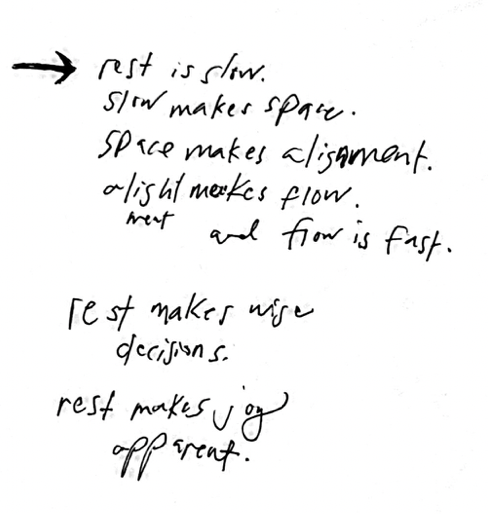 → rest is slow.
slow makes space.
space makes alignment.
alight makes flow.
ment and flow is fast.
rest makes wise
decisions.
rest makes joy
apparent.